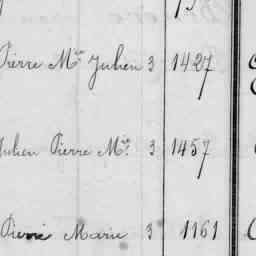 Pierre Mie Julien 3 1427
Julien Pierre Mie 3 1457
Pierre Marie 3 1161